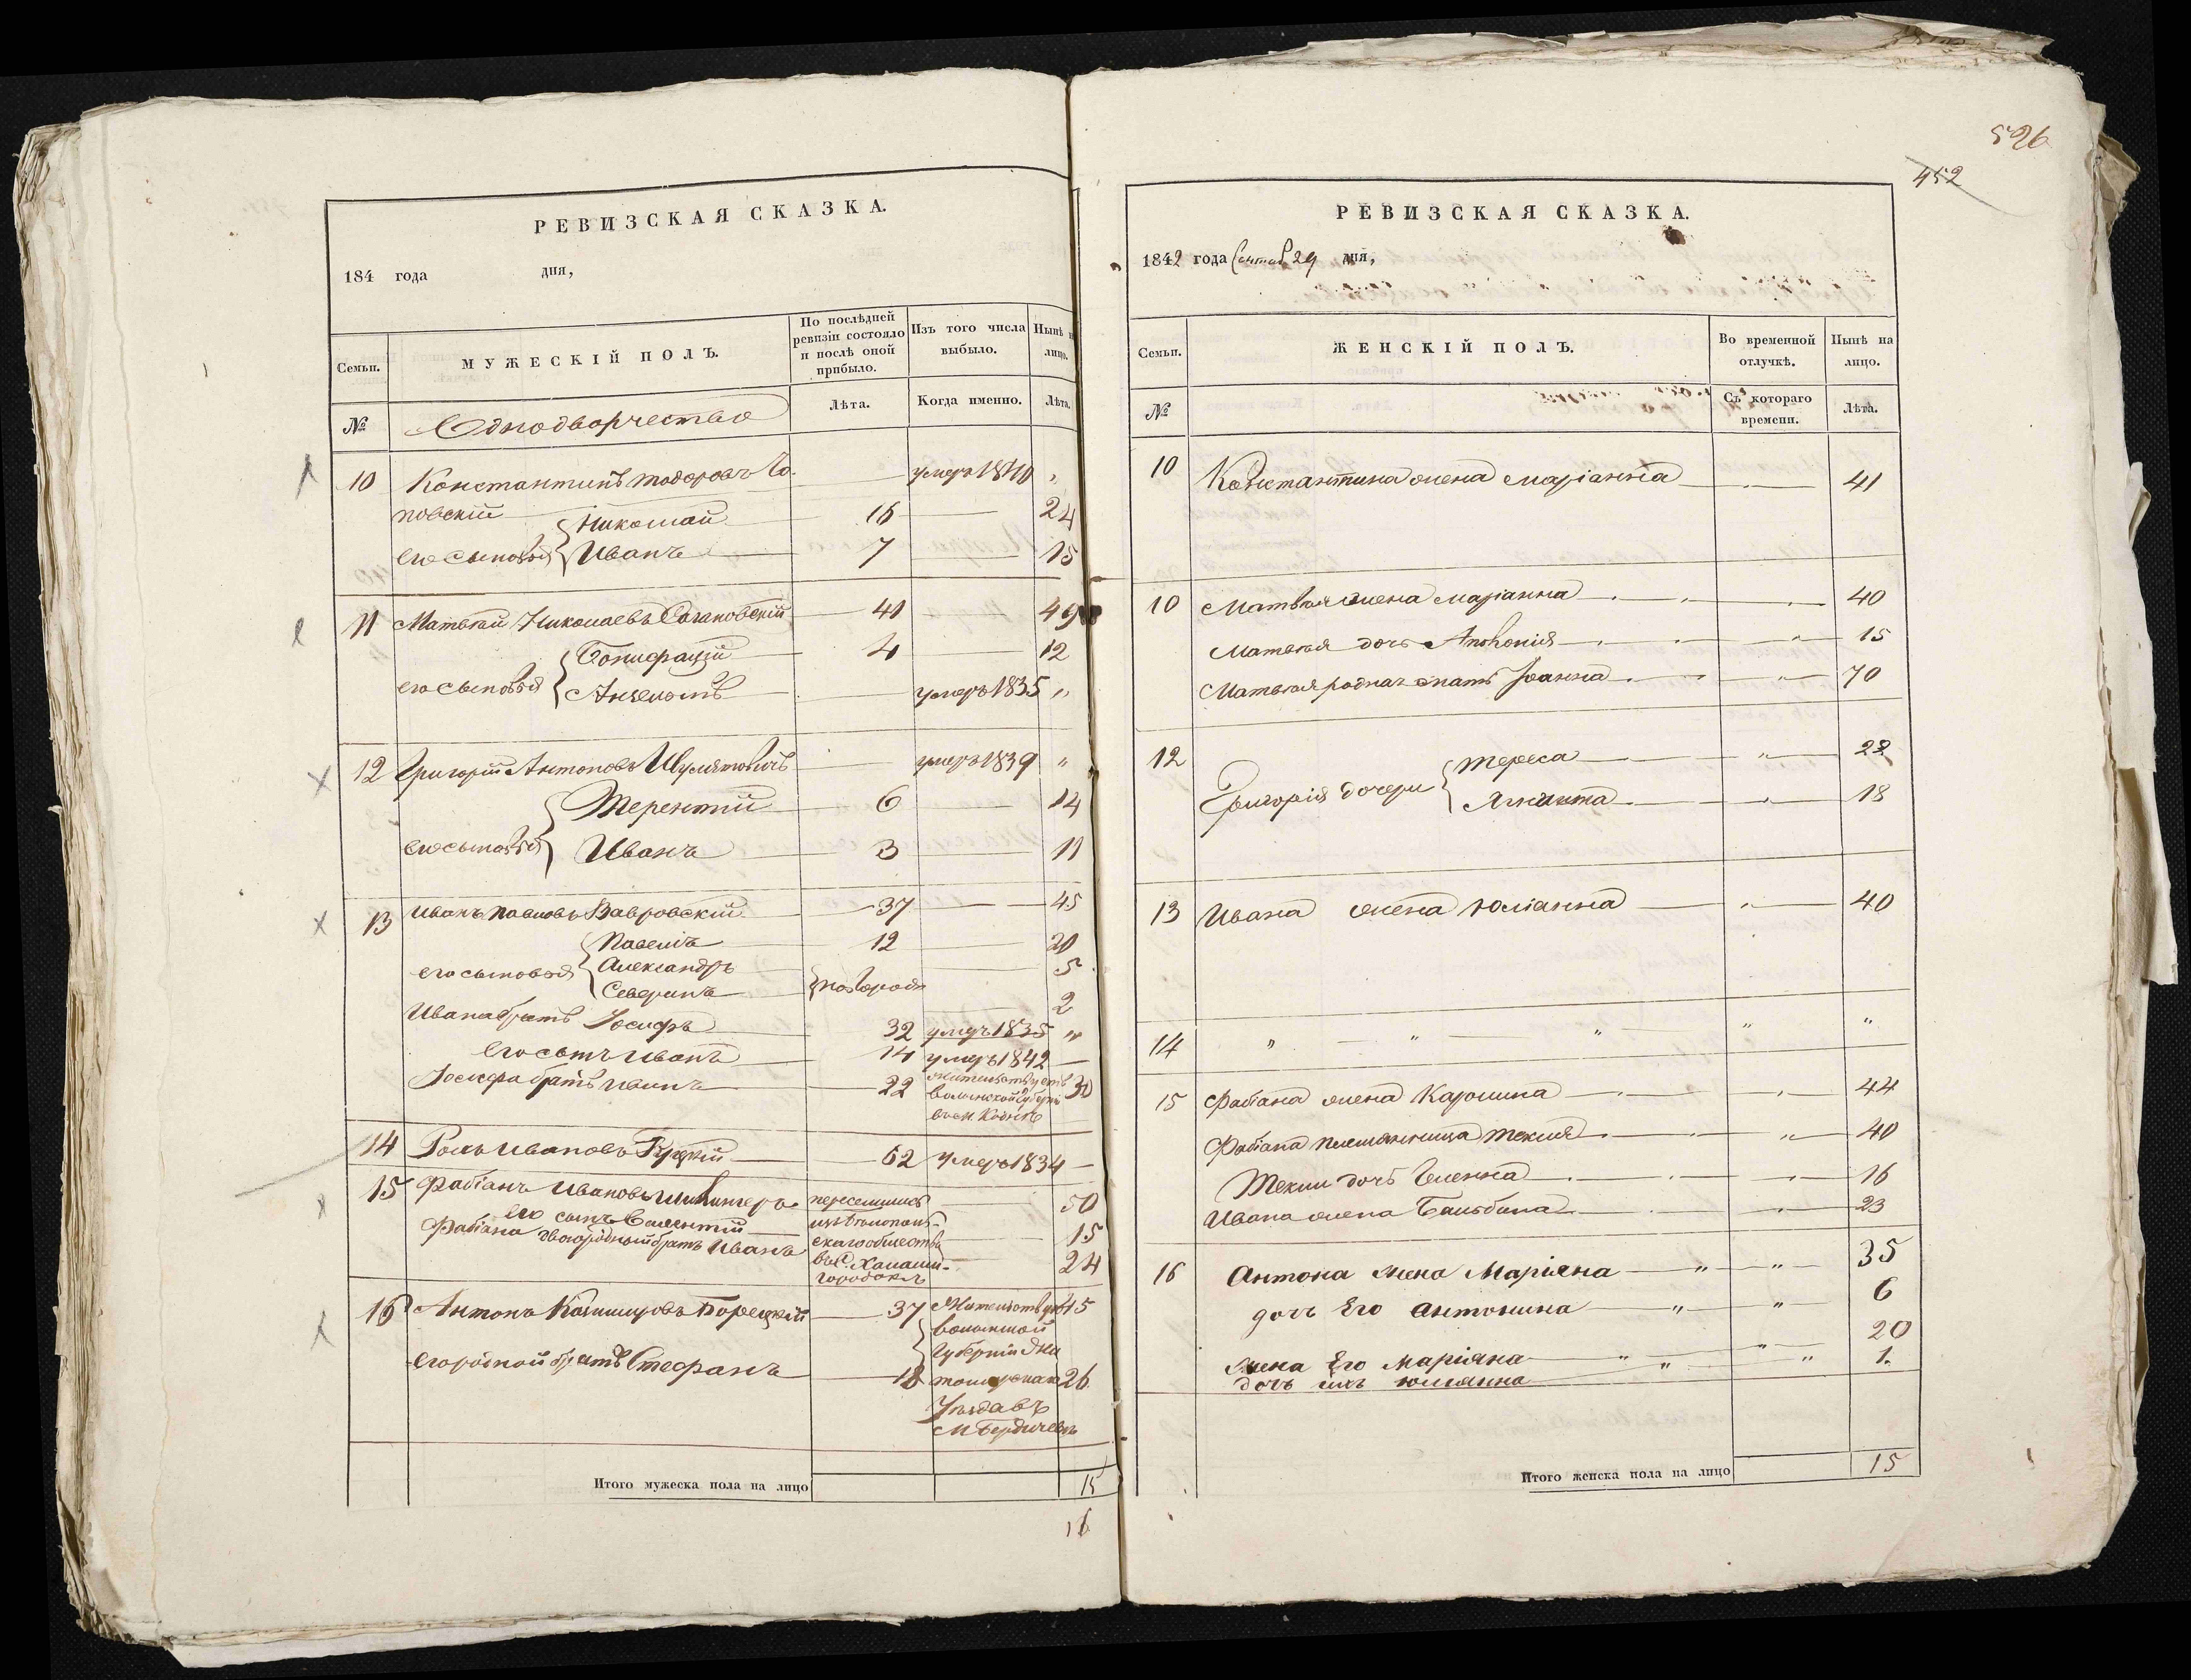 РЕВИЗСКАЯ СКАЗКА.
184 года дня,
Семьи. МУЖЕСКІЙ ПОЛЪ. По послѣдней ревизіи состояло и послѣ оной прибыло. Изъ того числа выбыло. Нынѣ на лицо.
№ Однодворчество Лѣта. Когда именно. Лѣта.
10 Константинъ тодоровъ Чо- умеръ 1840 "
повскій Николай 16 24
его сыновья Иванъ 7 15
11 Матвѣй Николаевъ 41 49
Бонифацій 4 12
его сыновья Анзельмъ умеръ 1835 "
12 Григорій Антоновъ Шулятовичъ умеръ 1839 "
Терентій 6 14
его сыновья Иванъ 3 11
13 Иванъ павловъ Вавровскій 37 45
Павелъ 12 20
его сыновья Александръ 5
Северинъ новорож 2
Ивана братъ Іосифъ 32 умеръ 1835 "
его сынъ Иванъ 14 умеръ 1842
Іосифа братъ Иванъ 22 жительствуетъ 30
волынской губерн
14 Ивановъ 62 умеръ 1834
15 Фабіанъ Ивановъ переселились 50
его сынъ Валентій 15
Фабіана двоюродный братъ Иванъ скаго общества 24
въ С.
городокъ
16 Антонъ Казимировъ Борецкій 37 Жительствую 45
волынской
Губерніи Жи
его родной братъ Стефанъ 18 томирскаго 26
Уѣзда въ
М Бердичевѣ
Итого мужеска пола на лицо 15
16
526
452
РЕВИЗСКАЯ СКАЗКА.
1842 года Сентяб 29 дня,
Семьи. ЖЕНСКІЙ ПОЛЪ. Во временной отлучкѣ. Нынѣ на лицо.
№ Съ котораго времени. Лѣта.
10 Константина жена маріанна 41
10 Матвѣя жена маріанна 40
Матвѣя дочь Апполонія 15
Матвѣя родная мать Іоанна 70
12 Тереса 22
Григорія дочери 18
13 Ивана жена Юліанна 40
14 " " " " "
15 Фабіана жена Каролина 44
Фабіана племянница Текля 40
Текли дочь Еленна 16
Ивана жена Бальбина 23
16 Антона жена Маріяна " " 35
дочь Его Антонина " " 6
жена Его Маріяна " " 20
дочь ихъ юліянна " " 1.
Итого женска пола на лицо 15